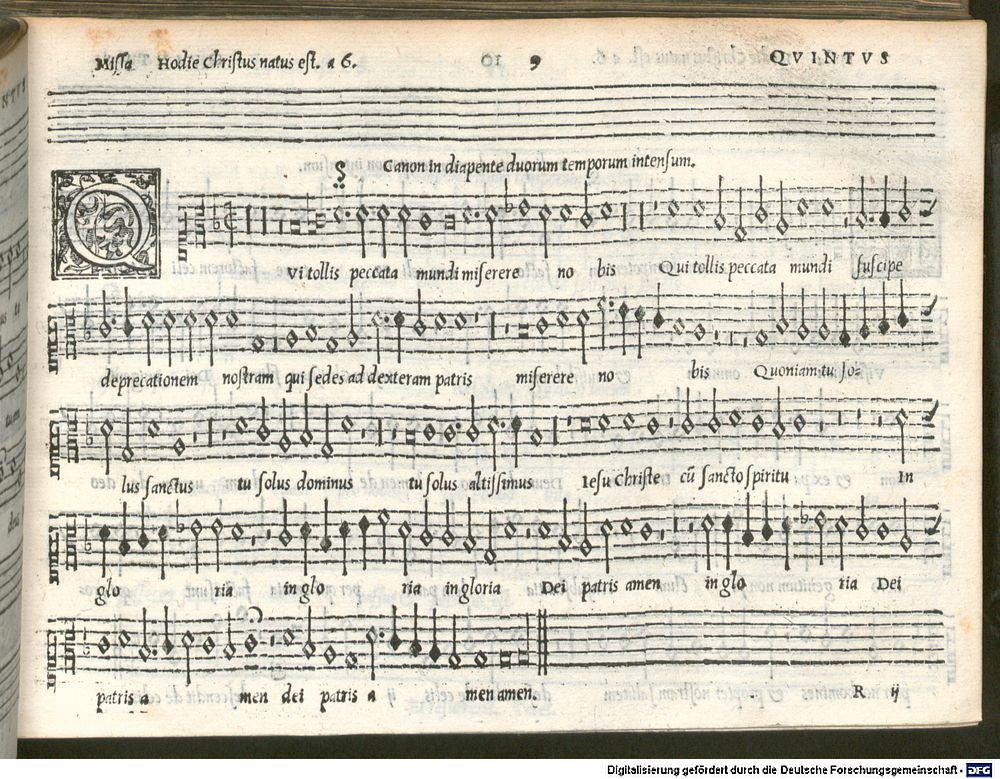 Missa Hodie Christus natus est. a 6. 9 QVINTVS
Canon in diapente duorum temporum intensum.
QVi tollis peccata mundi miserere no bis Qui tollis peccata mundi suscipe
deprecationem nostram qui sedes ad dexteram patris miserere no bis Quoniam tu so-
lus sanctus tu solus dominus tu solus altissimus Iesu Christe cũ sancto spiritu in
glo ria in glo ria in gloria Dei patris amen in glo ria Dei
patris a men dei patris a men amen.
R ij
Digitalisierung gefördert durch die Deutsche Forschungsgemeinschaft - DFG